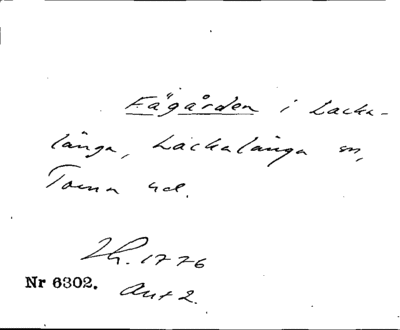 Fägården i Lacka-
långa, Lackalänga sn,
Torna hd.
Lh. 1776
Nr 6302.
Ant 2.